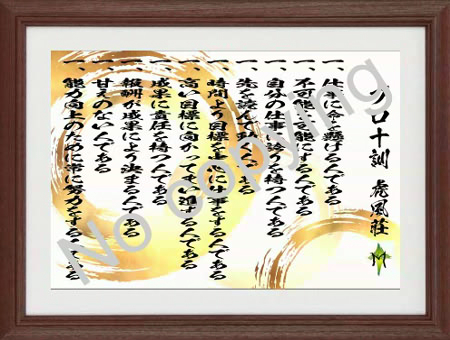 プロ十訓 虎風荘
M
一、仕事に命を懸ける人である
一、不可能を可能にする人である
一、自分の仕事に誇りを持つ人である
一、先を読んで動く人である
一、時間より目標を中心に仕事をする人である
一、高い目標に向かってまい進する人である
一、成果に責任を持つ人である
一、報酬が成果により決まる人である
一、甘えのない人である
一、能力向上のために常に努力をする人である
No copying